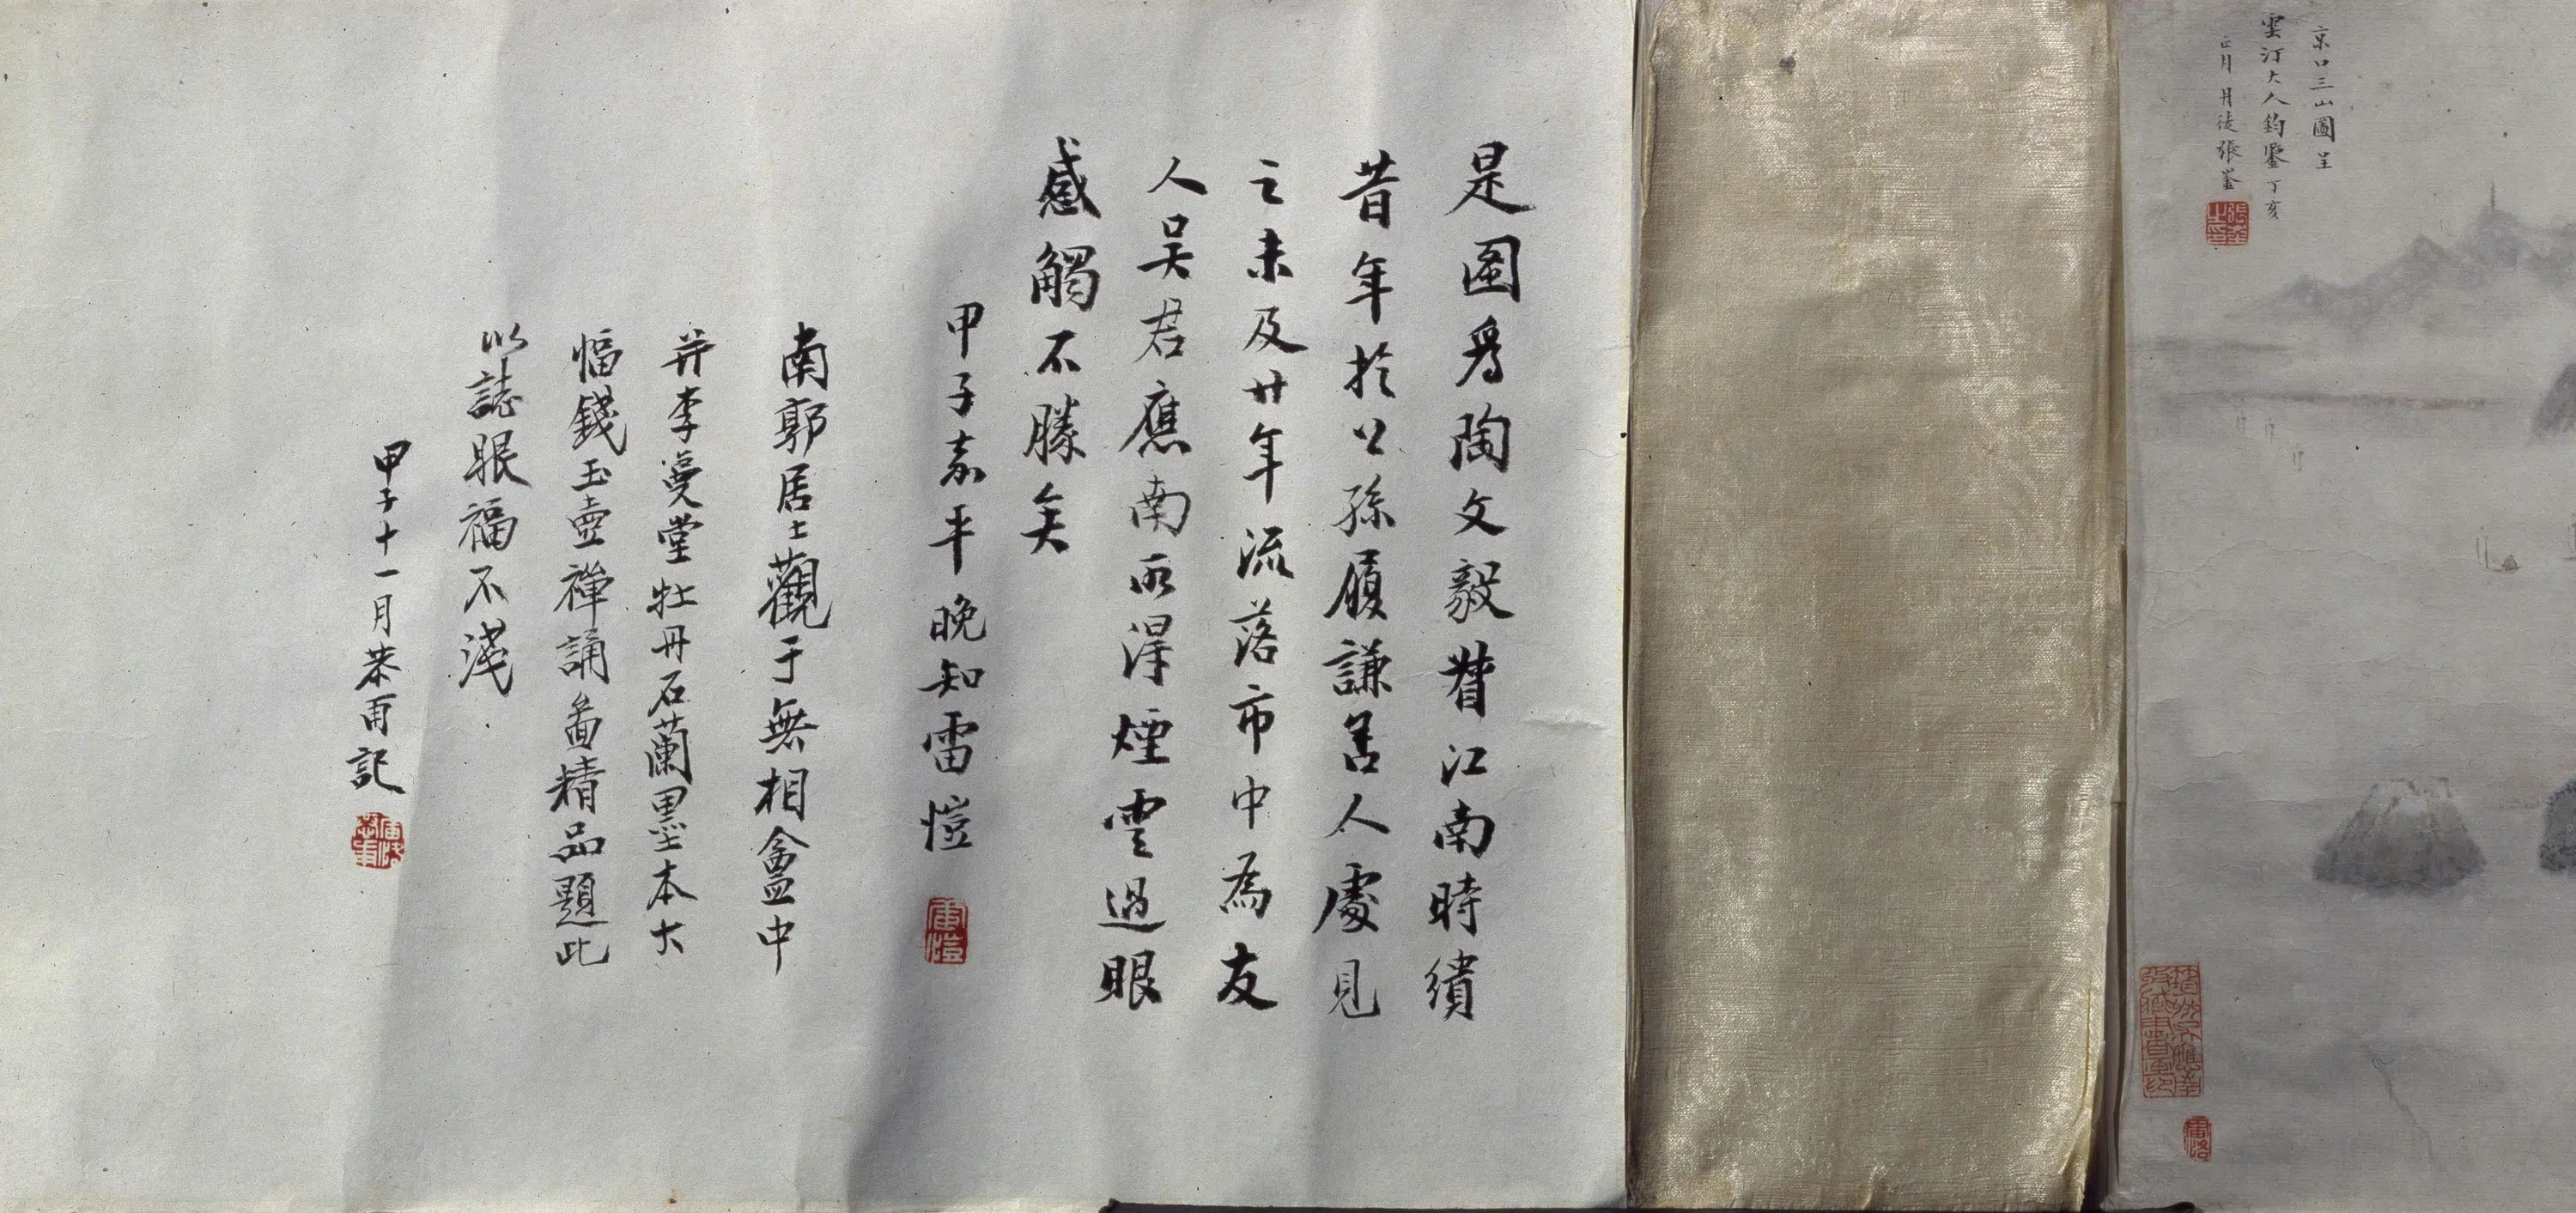 京口三山圖呈
雲汀大人鈞鑒丁亥
正月丹徒張崟
是圖爲陶文毅督江南時繢
昔年於公孫履謙舍人處見
之未及廿年流落市中為友
人吴君應南所得煙雲過眼
感觸不勝矣
甲子嘉平晚知雷愷
南郭居士觀于無相盦中
并李蔓堂牡丹石蘭墨本大
幅錢玉壺禪誦啚精品題此
以誌眼福不淺
甲子十一月恭甫記
雷愷